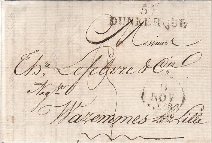 DUNKERQUE
Monsieur
Chs. Lefebvre & Cie
Négts
NOV
Wazemmes Lille